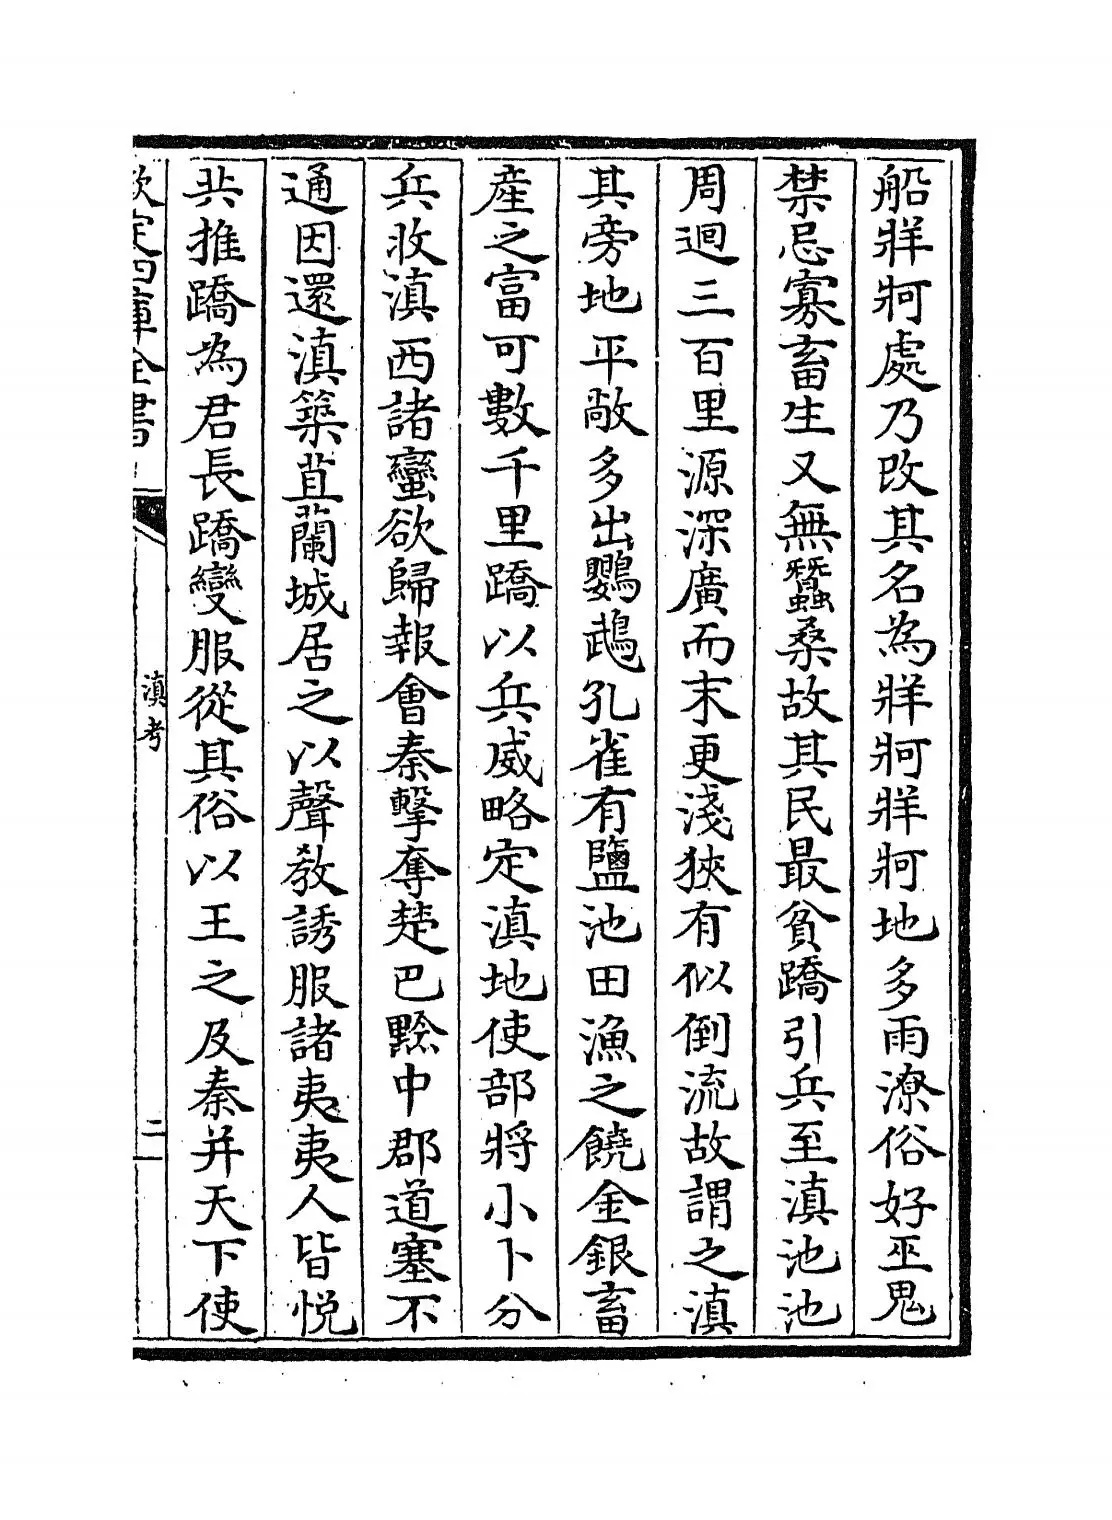 船牂牁處乃改其名為牂牁牂牁地多雨潦俗好巫鬼
禁忌寡畜生又無蠶桑故其民最貧蹻引兵至滇池池
周迴三百里源深廣而末更淺狹有似倒流故謂之滇
其旁地平敞多出鸚鵡孔雀有鹽池田漁之饒金銀畜
産之富可數千里蹻以兵威略定滇地使部將小卜分
兵收滇西諸蠻欲歸報會秦擊奪楚巴黔中郡道塞不
通因還滇築苴蘭城居之以聲教誘服諸夷夷人皆悦
共推蹻為君長蹻變服從其俗以王之及秦并天下使
欽定四庫全書
滇考
二